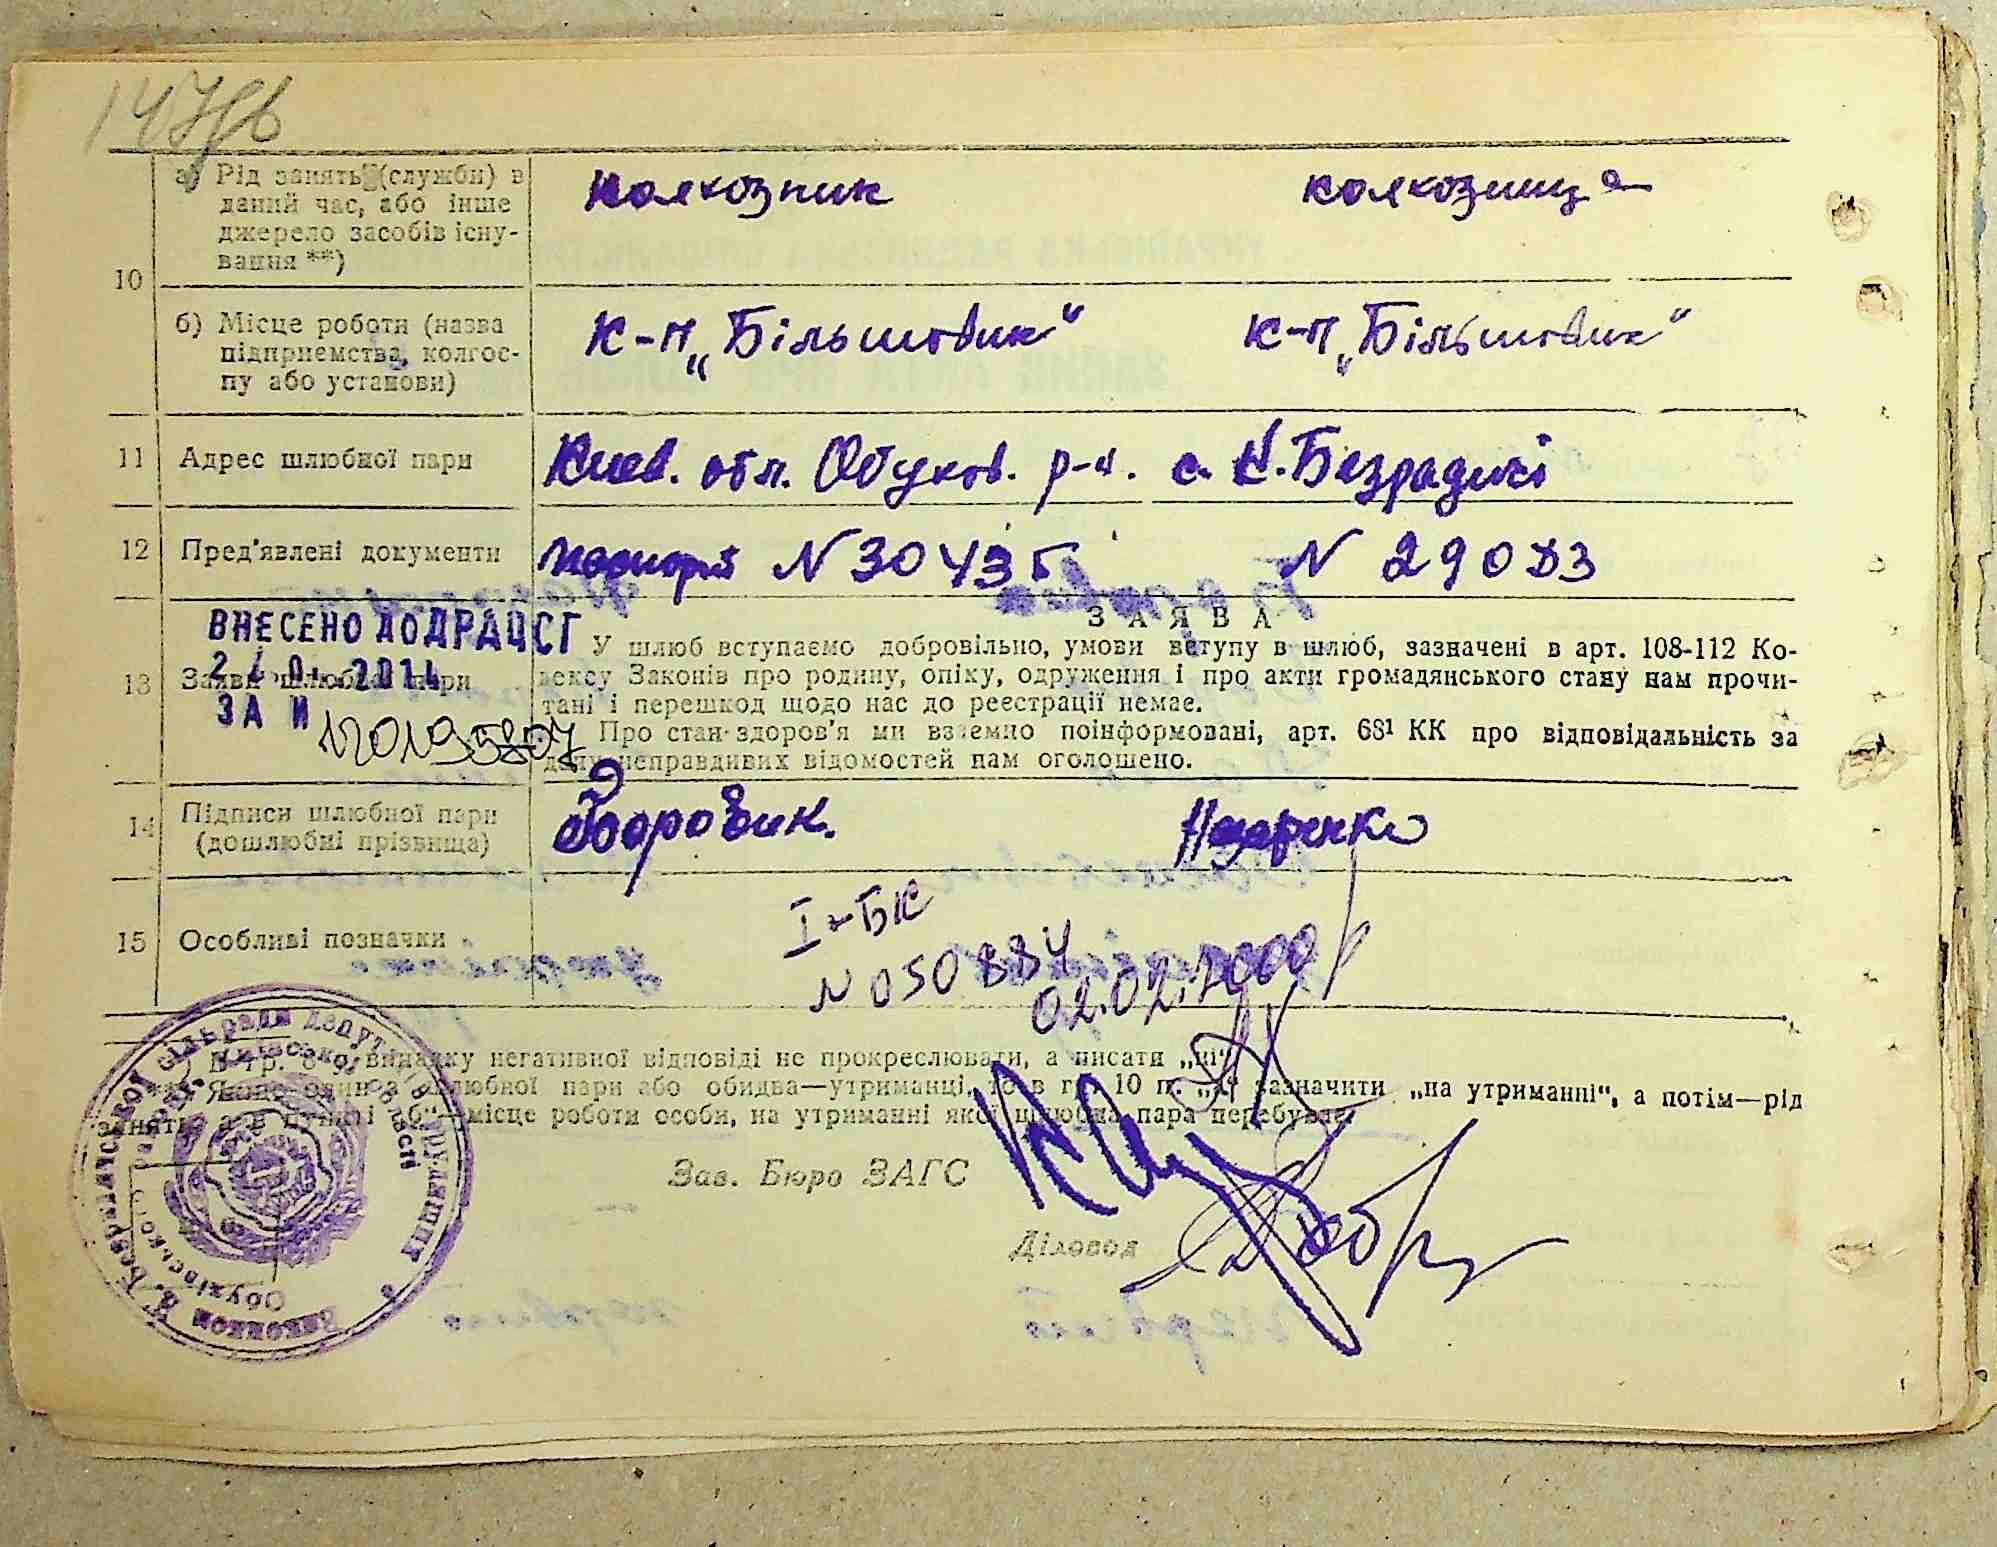 147зв
а) Рід занять (службы) в
даний час, або інше
джерело засобів існу-
вання **)
колхозник
колхозница
10
б) Місце роботи (назва
підприємства, колгос-
пу або установи)
к-п „Більшовик"
к-п „Більшовик"
11
Адрес шлюбної пари
Киев. обл. Обухов. р-н. с. Н. Безрадичі
12
Пред'явлені документи
паспорт N 30435
N 29023
ВНЕСЕНО ДО ДРАЦСГ
2014
ЗА N
120195807
13
Заява шлюбної пари
ЗАЯВА
У шлюб вступаємо добровільно, умови вступу в шлюб, зазначені в арт. 108-112 Ко-
дексу Законів про родину, опіку, одруження і про акти громадянського стану нам прочи-
тані і перешкод щодо нас до реєстрації немає.
Про стан здоров'я ми взаємно поінформовані, арт. 68¹ КК про відповідальність за
дачу неправдивих відомостей нам оголошено.
14
Підписи шлюбної пари
(дошлюбні прізвища)
Боровик.
Назаренко
15
Особливі позначки
I-БК
N 050884
02.02.2000
*) В гр. 8-9 випадку негативної відповіді не прокреслювати, а писати „ні"
**) Якщо один з шлюбної пари або обидва—утриманці, то в гр. 10 п. „а" зазначити „на утриманні", а потім—рід
занять, а в пункті „б"—місце роботи особи, на утриманні якої шлюбна пара перебуває.
Зав. Бюро ЗАГС
Діловод
Виконком Н. Безрадичської сільради депутатів трудящих
Обухівського району Київської області